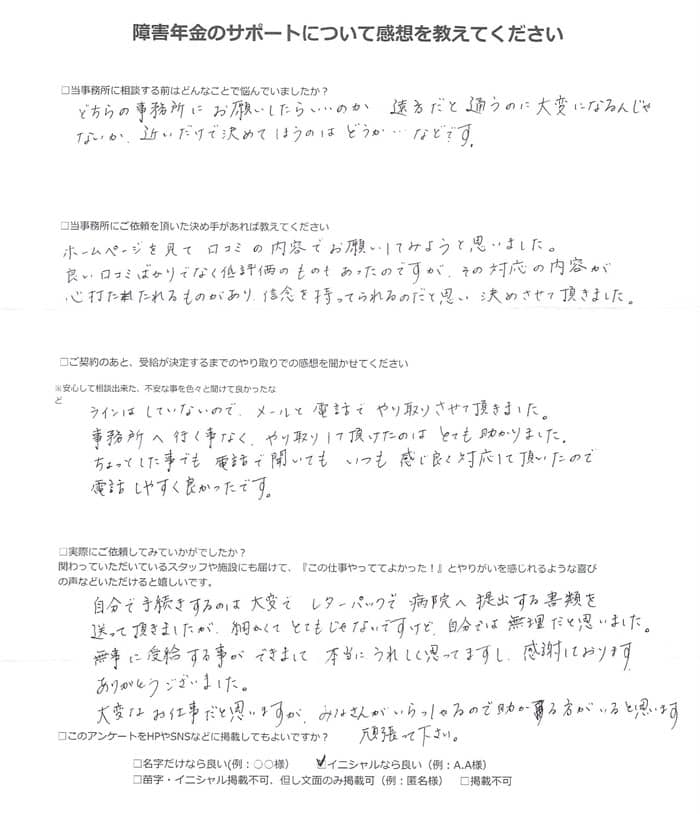 障害年金のサポートについて感想を教えてください
□当事務所に相談する前はどんなことで悩んでいましたか？
どちらの事務所に お願いしたらいいのか 遠方だと 通うのに 大変になるんじゃ
ないか、近いだけで決めてしまうのは どうか… などです。
□当事務所にご依頼を頂いた決め手があれば教えてください
ホームページを見て 口コミの内容でお願いしてみようと思いました。
良い口コミばかりでなく低評価のものもあったのですが、その対応の内容が
心打たれるものがあり、信念を持ってられるのだと思い 決めさせて頂きました。
□ご契約のあと、受給が決定するまでのやり取りでの感想を聞かせてください
※安心して相談出来た、不安な事を色々と聞けて良かったな
ど
ラインは していないので、メールと 電話で やり取りさせて頂きました。
事務所へ行く事なく、やり取りして頂けたのは とても助かりました。
ちょっとした事でも 電話で聞いても いつも 感じ良く対応して頂いたので
電話しやすく良かったです。
□実際にご依頼してみていかがでしたか？
関わっていただいているスタッフや施設にも届けて、『この仕事やっててよかった！』とやりがいを感じれるような喜び
の声などいただけると嬉しいです。
自分で手続きするのは 大変で レターパックで 病院へ 提出する書類を
送って頂きましたが、細かくて とてもじゃないですけど、自分では 無理だと思いました。
無事に受給する事が できまして 本当に うれしく思ってますし、感謝しております
ありがとうございました。
大変な お仕事だと思いますが、みなさんがいらっしゃるので助かる方がいると思います
頑張って下さい。
□このアンケートをHPやSNSなどに掲載してもよいですか？
□名字だけなら良い(例：○○様） ☑イニシャルなら良い（例：A.A様）
□苗字・イニシャル掲載不可、但し文面のみ掲載可（例：匿名様） □掲載不可